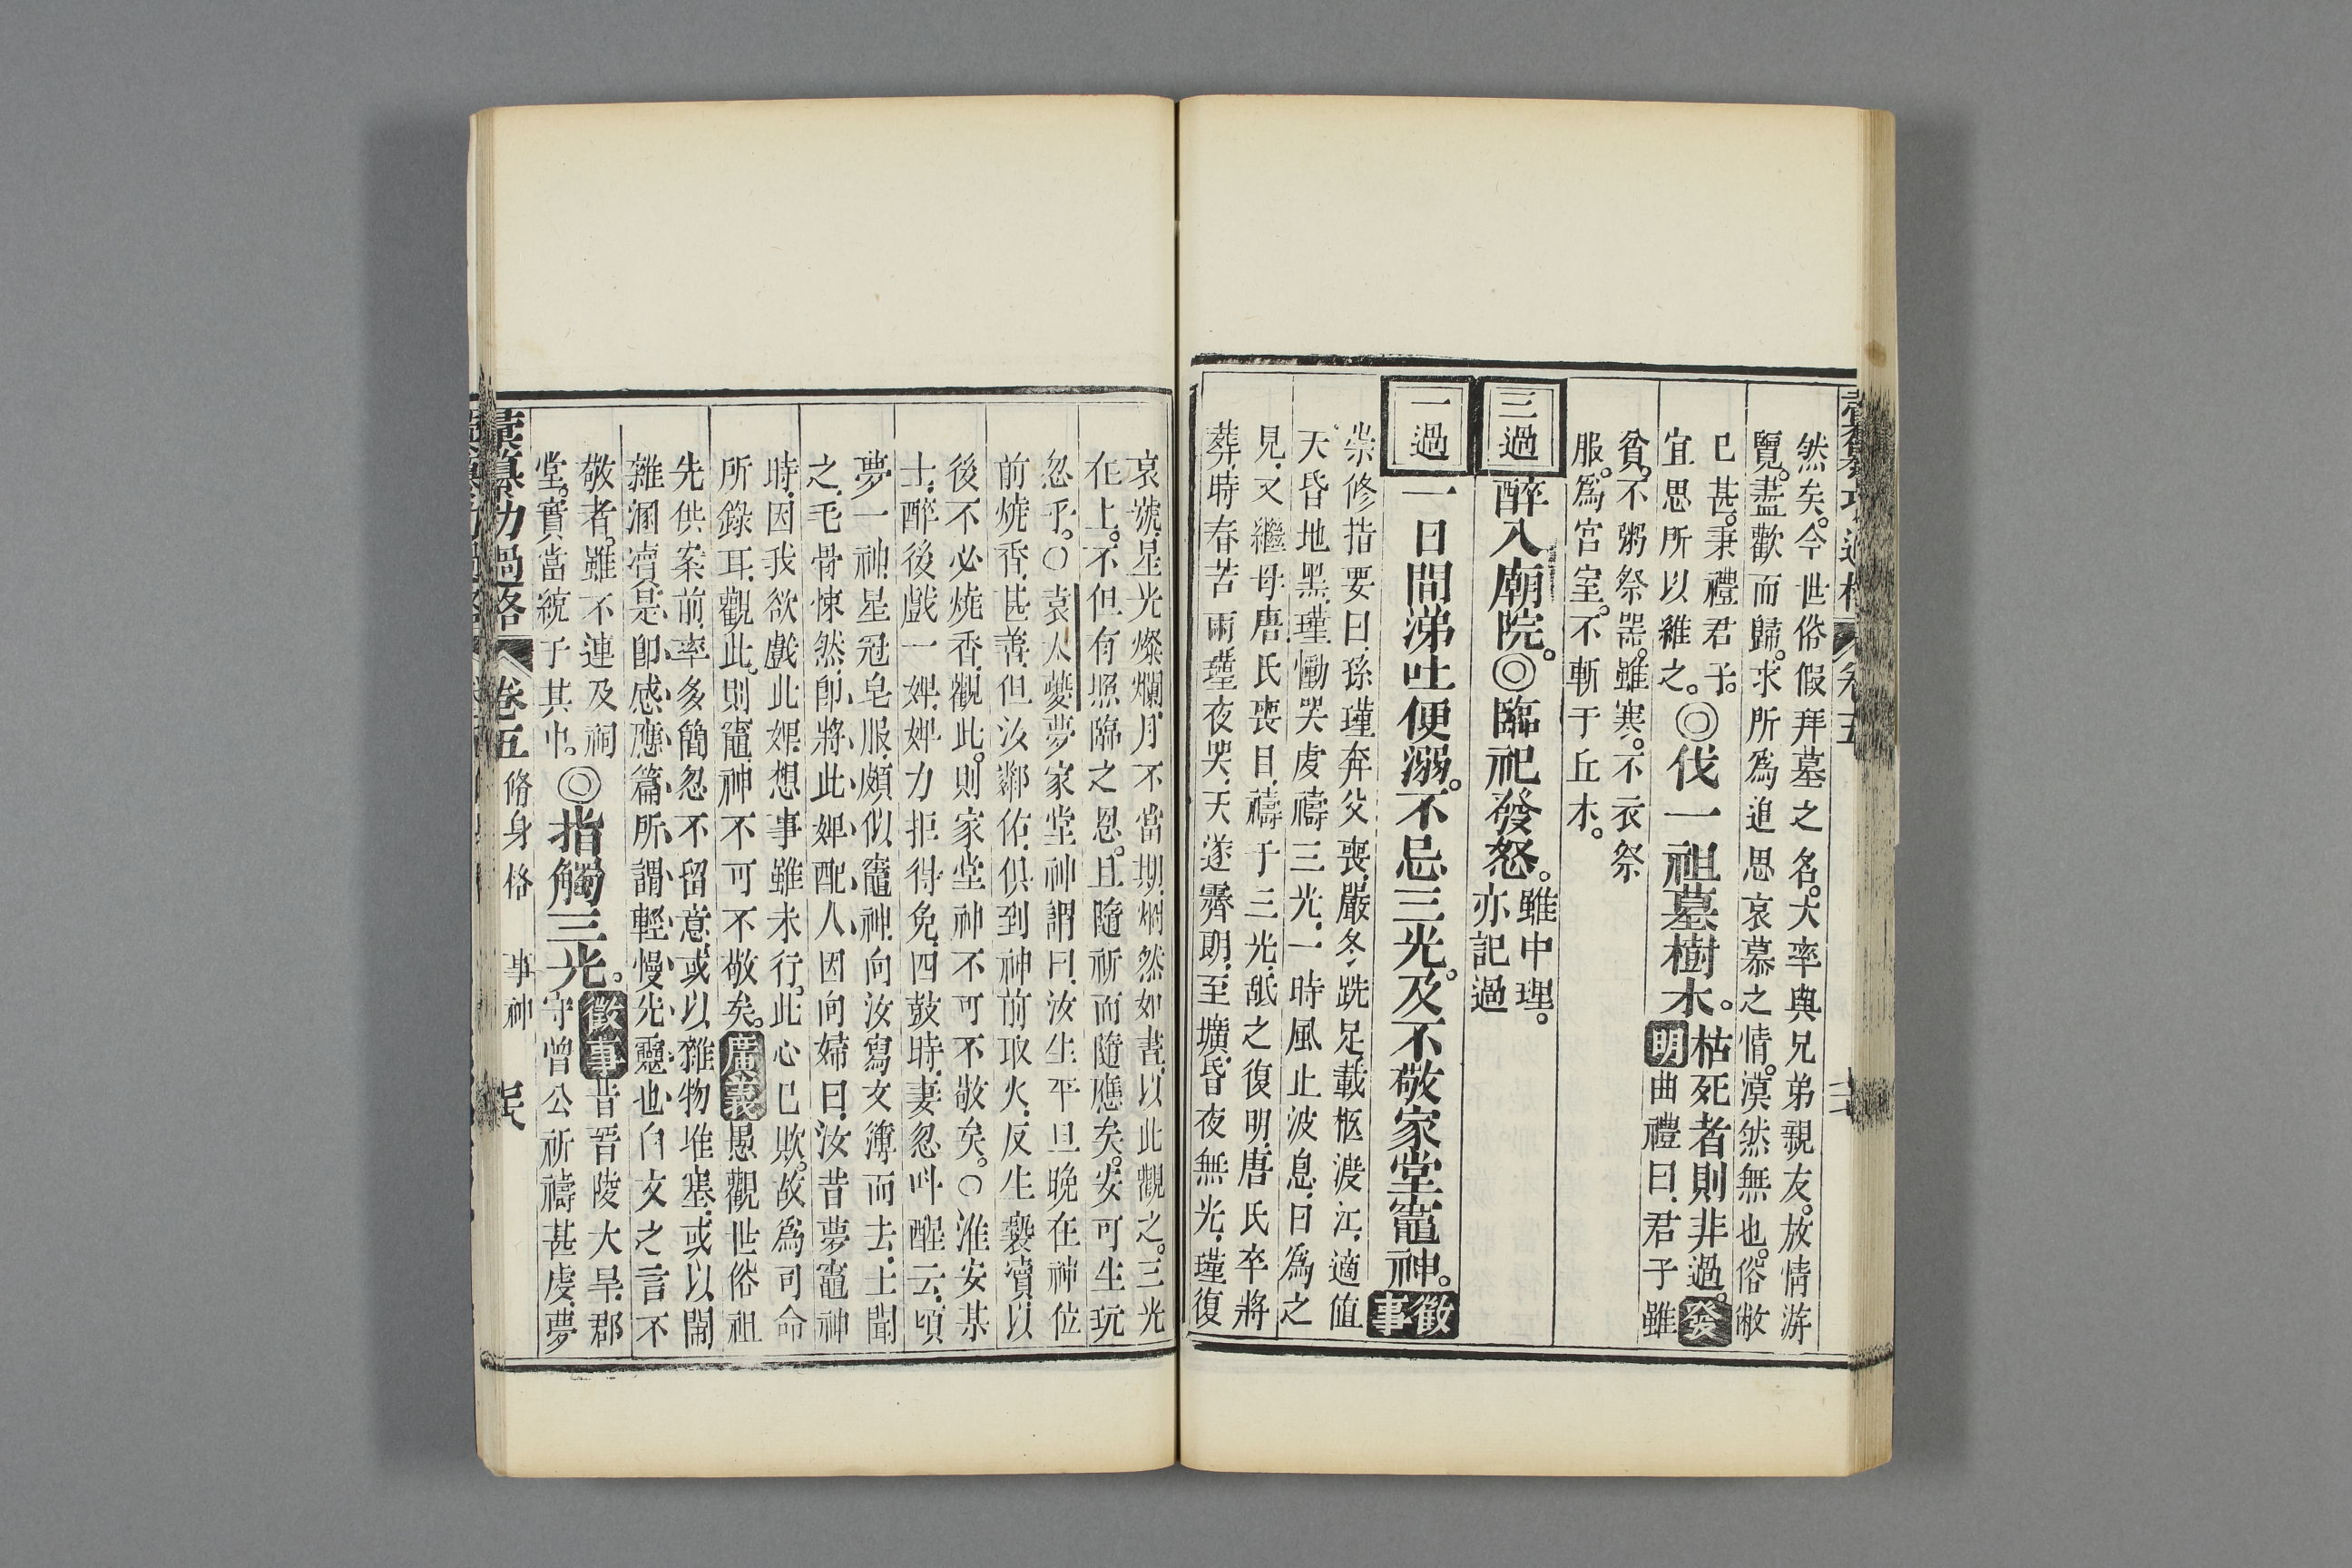 然矣。今世俗假拜墓之名。大率與兄弟親友。放情游
覽。盡歡而歸。求所爲追思哀慕之情。漠然無也。俗敝
已甚。秉禮君子。宜思所以維之。◎伐一祖墓樹木。枯死者則非過。發明曲禮曰、君子雖
貧。不粥祭器。雖寒。不衣祭
服。爲宮室。不斬于丘木。
三過
醉入廟院。◎臨祀發怒。雖中理。亦記過
一過
一日間涕吐便溺。不忌三光。及不敬家堂竈神。徵事
崇修指要曰、孫瑾奔父喪、嚴冬、跣足、載柩渡江、適值
天昏地黑、瑾慟哭虔禱三光、一時風止波息、日爲之
見、又繼母唐氏喪目、禱于三光、舐之復明、唐氏卒將
葬、時春苦雨、瑾夜哭、天遂霽朗、至壙、昏夜無光、瑾復
哀號、星光燦爛、月不當期、烱然如晝、以此觀之。三光
在上。不但有照臨之恩。且隨祈而隨應矣。安可生玩
忽乎。○袁太夔夢家堂神謂曰、汝生平旦晚在神位
前燒香、甚善、但汝鄰佑、俱到神前取火、反生褻瀆、以
後不必燒香、觀此。則家堂神不可不敬矣。○淮安某
士、醉後戲一婢、婢力拒得免、四鼓時、妻忽叫醒云、頃
夢一神、星冠皂服、頗似竈神、向汝寫文簿而去、上聞
之、毛骨悚然、卽將此婢配人、因向婦曰、汝昔夢竈神
時、因我欲戲此婢、想事雖未行。此心已欺。故爲司命
所錄耳、觀此。則竈神不可不敬矣。廣義愚觀世俗祖
先供案前、率多簡忽不留意、或以雜物堆塞、或以鬧
雜溷瀆是卽感應篇所謂輕慢先靈也、白文之言不
敬者。雖不連及祠堂。實當統于其中。◎指觸三光。徵事昔晉陵大旱、郡
守曾公祈禱甚虔、夢
彙纂功過格 卷五 脩身格 事神